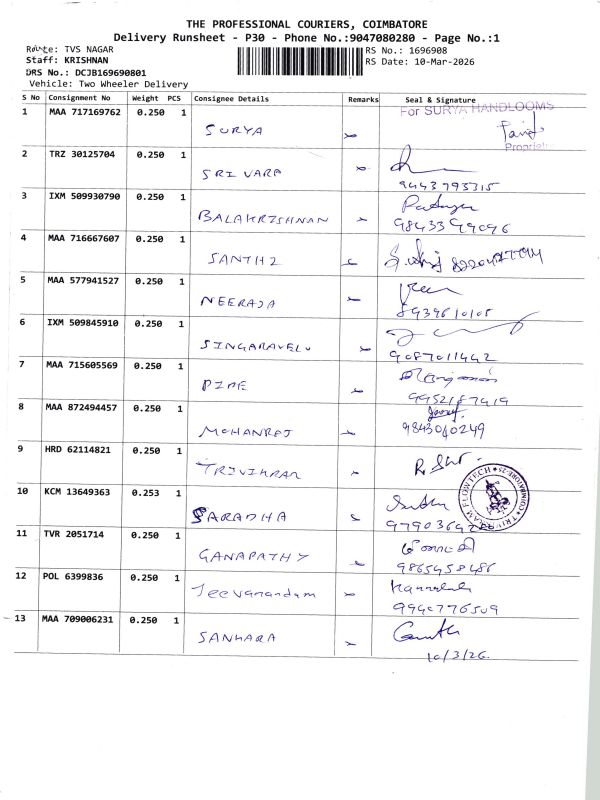 THE PROFESSIONAL COURIERS, COIMBATORE
Delivery Runsheet - P30 - Phone No.:9047080280 - Page No.:1
Route: TVS NAGAR
RS No.: 1696908
Staff: KRISHNAN
RS Date: 10-Mar-2026
DRS No.: DCJB169690801
Vehicle: Two Wheeler Delivery
S No Consignment No Weight PCS Consignee Details Remarks Seal & Signature
1 MAA 717169762 0.250 1 SURYA For SURYA HANDLOOMS
2 TRZ 30125704 0.250 1 SRI VARA
9443793315
3 IXM 509930790 0.250 1 BALAKRISHNAN
9843399096
4 MAA 716667607 0.250 1 SANTHI
5 MAA 577941527 0.250 1 NEERAJA
8939610105
6 IXM 509845910 0.250 1 SINGARAVELU
9087011442
7 MAA 715605569 0.250 1 PIPE
9952187419
8 MAA 872494457 0.250 1 MOHANRAJ
9843040249
9 HRD 62114821 0.250 1 TRIVIKRAM
10 KCM 13649363 0.253 1 SARADHA
11 TVR 2051714 0.250 1 GANAPATHY
9865458486
12 POL 6399836 0.250 1 Jeevanandam
9940776509
13 MAA 709006231 0.250 1 SANKARA
10/3/26